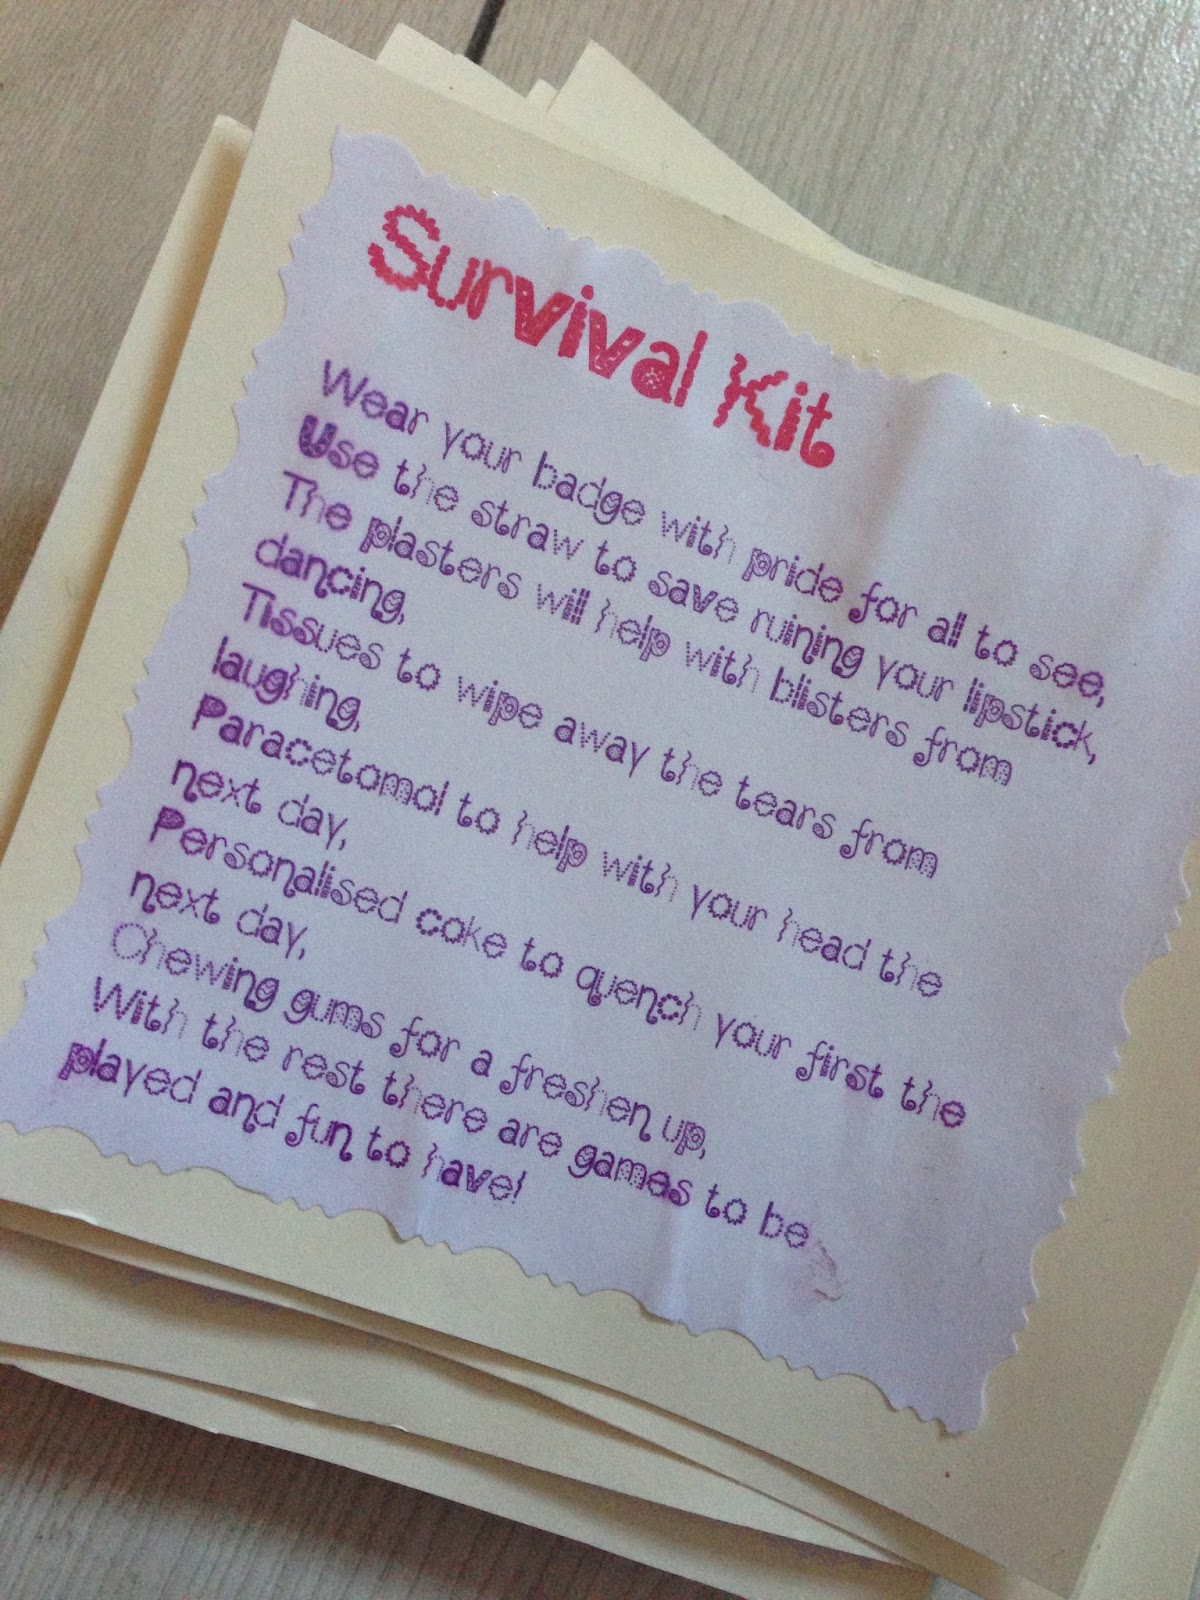 Survival Kit
Wear your badge with pride for all to see,
Use the straw to save ruining your lipstick,
The plasters will help with blisters from
dancing,
Tissues to wipe away the tears from
laughing,
Paracetomol to help with your head the
next day,
Personalised coke to quench your first the
next day,
Chewing gums for a freshen up,
With the rest there are games to be
played and fun to have!